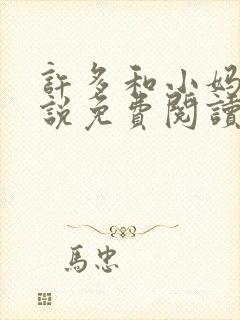 許多和小妈
說免費閱讀
馬忠